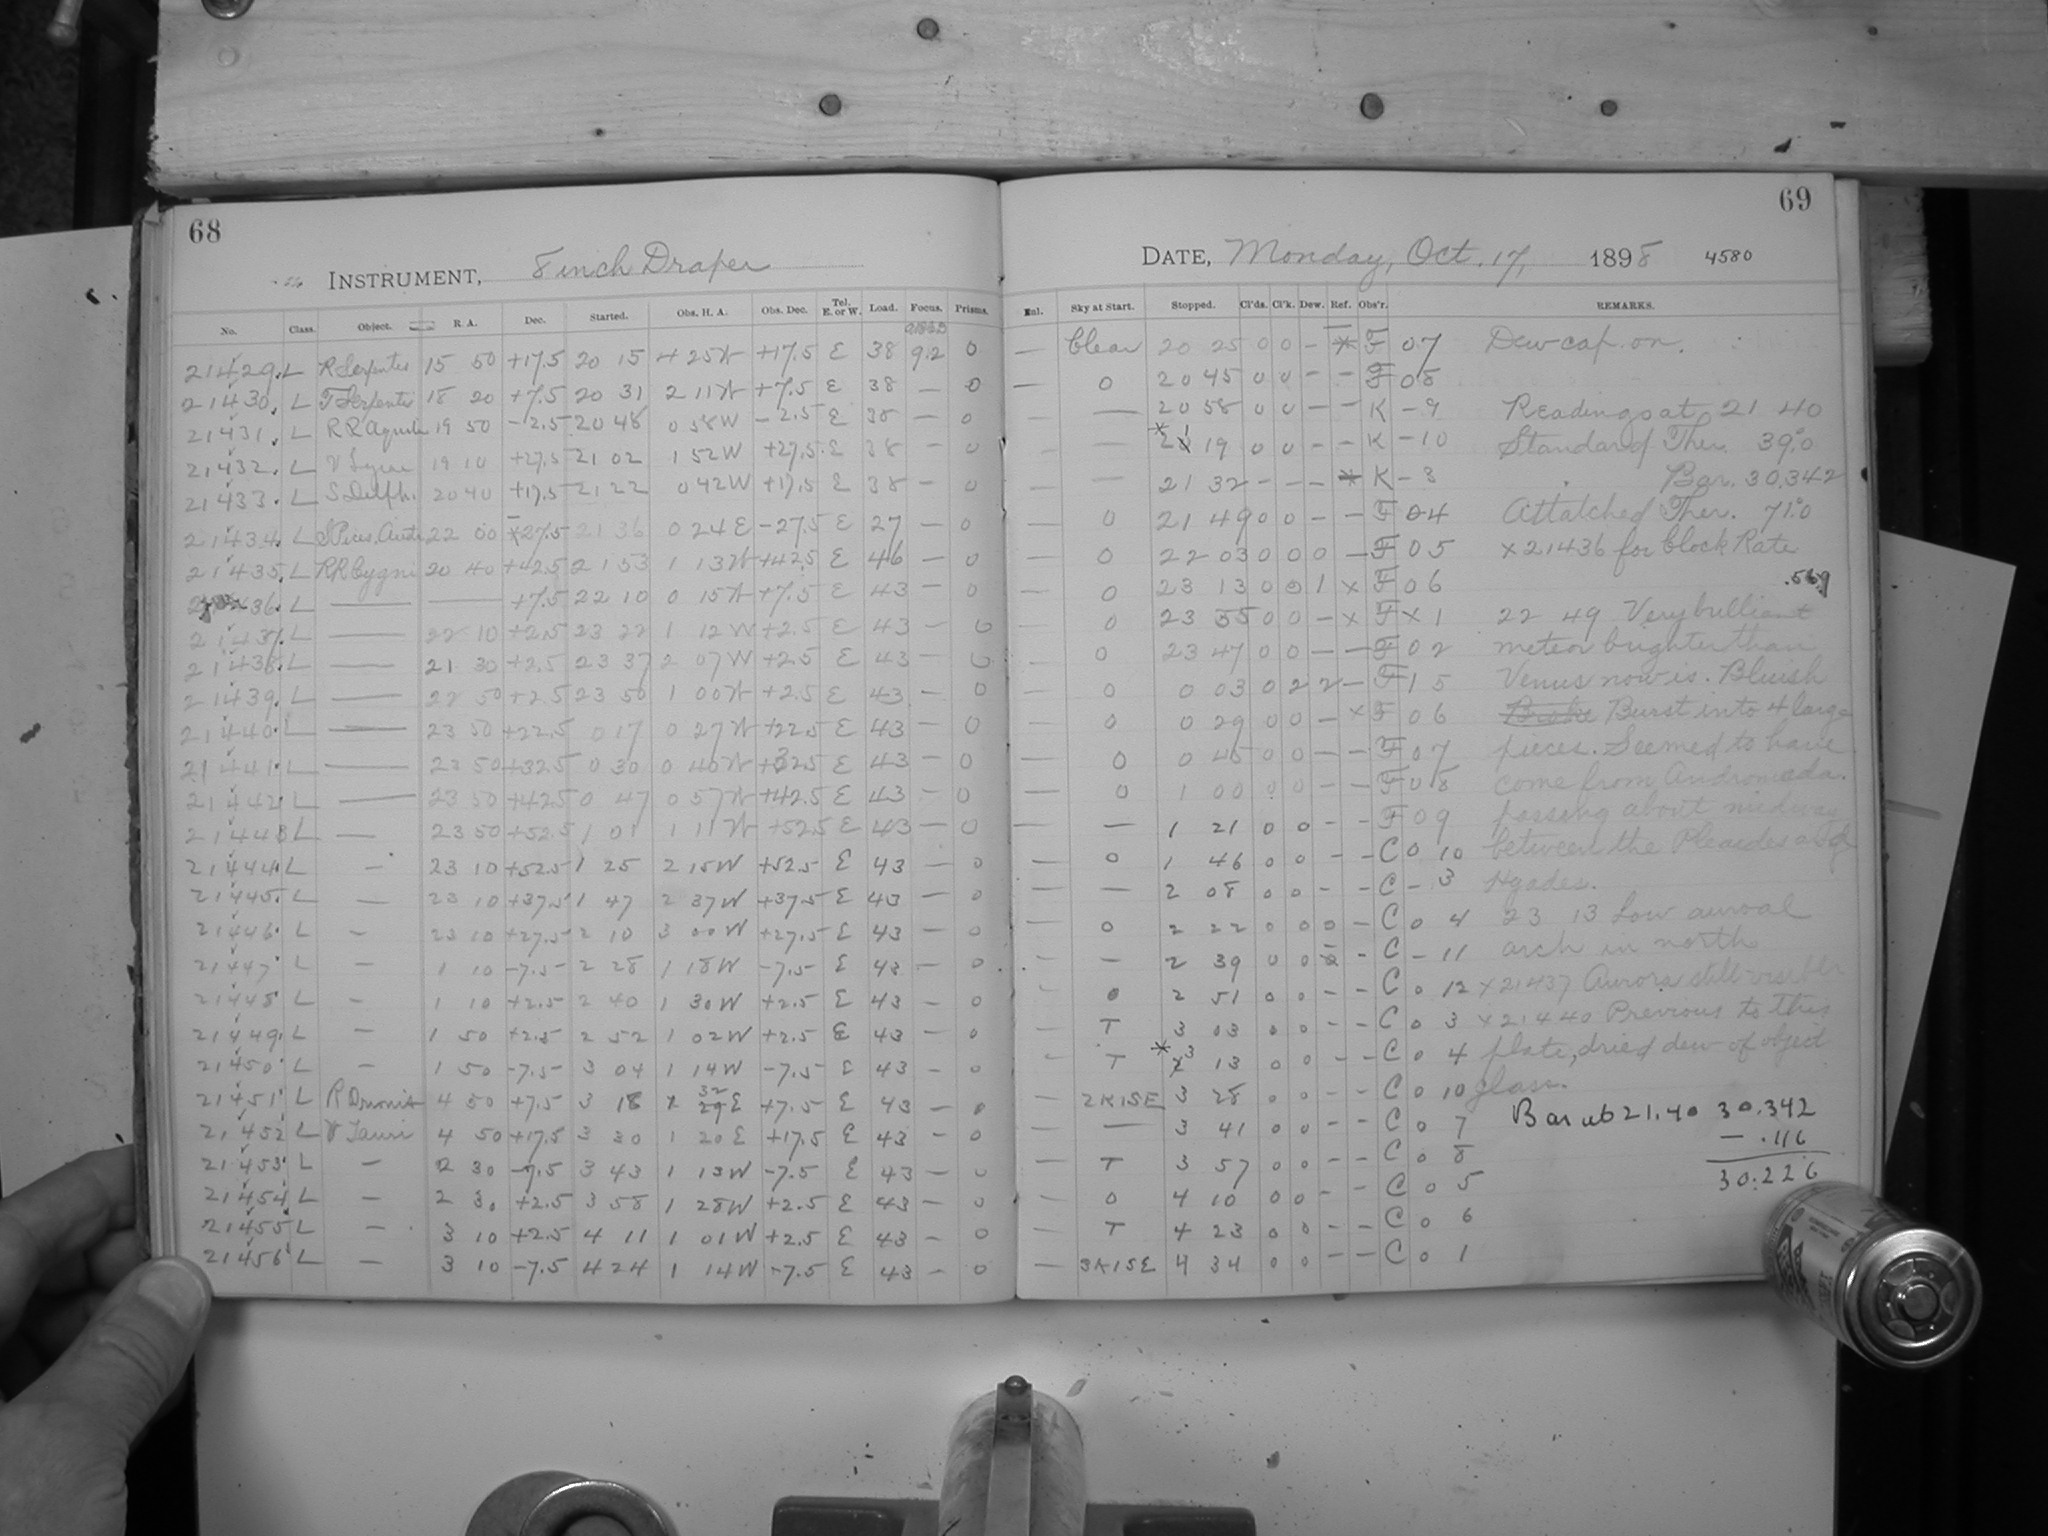 68
INSTRUMENT, 8 inch Draper
No. Class. Object. R. A. Dec. Started. Obs. H. A. Obs. Dec. Tel. E. or W. Load. Focus. Prisms.
21429. L R Serpentis 15 50 +17.5 20 15 4 25 W +17.5 E 38 9.2 0
21430. L T Serpentis 18 20 +7.5 20 31 2 11 W +7.5 E 38 — 0
21431. L RR Aquilae 19 50 -2.5 20 48 0 58 W -2.5 E 38 — 0
21432. L V Lyrae 19 10 +27.5 21 02 1 52 W +27.5 E 38 — 0
21433. L S Delph. 20 40 +17.5 21 22 0 42 W +17.5 E 38 — 0
21434. L S Pisc. Aust. 22 00 -27.5 21 36 0 24 E -27.5 E 27 — 0
21435. L RR Cygni 20 40 +42.5 21 53 1 13 W +42.5 E 46 — 0
21436. L — — +7.5 22 10 0 15 W +7.5 E 43 — 0
21437. L — 22 10 +2.5 23 22 1 12 W +2.5 E 43 — 0
21438. L — 21 30 +2.5 23 37 2 07 W +2.5 E 43 — 0
21439. L — 22 50 +2.5 23 50 1 00 W +2.5 E 43 — 0
21440. L — 23 50 +22.5 0 17 0 27 W +22.5 E 43 — 0
21441. L — 23 50 +32.5 0 30 0 40 W +32.5 E 43 — 0
21442. L — 23 50 +42.5 0 47 0 57 W +42.5 E 43 — 0
21443 L — 23 50 +52.5 1 01 1 11 W +52.5 E 43 — 0
21444. L — 23 10 +52.5 1 25 2 15 W +52.5 E 43 — 0
21445. L — 23 10 +37.5 1 47 2 37 W +37.5 E 43 — 0
21446. L — 23 10 +27.5 2 10 3 00 W +27.5 E 43 — 0
21447 L — 1 10 -7.5 2 28 1 18 W -7.5 E 43 — 0
21448 L — 1 10 +2.5 2 40 1 30 W +2.5 E 43 — 0
21449. L — 1 50 +2.5 2 52 1 02 W +2.5 E 43 — 0
21450 L — 1 50 -7.5 3 04 1 14 W -7.5 E 43 — 0
21451 L R Orionis 4 50 +7.5 3 18 1 32 29 E +7.5 E 43 — 0
21452 L V Tauri 4 50 +17.5 3 30 1 20 E +17.5 E 43 — 0
21453 L — 2 30 -7.5 3 43 1 13 W -7.5 E 43 — 0
21454 L — 2 30 +2.5 3 58 1 28 W +2.5 E 43 — 0
21455 L — 3 10 +2.5 4 11 1 01 W +2.5 E 43 — 0
21456 L — 3 10 -7.5 4 24 1 14 W -7.5 E 43 — 0
69
DATE, Monday, Oct. 17, 1898 4580
Enl. Sky at Start. Stopped. Cl'ds. Cl'k. Dew. Ref. Obs'r. REMARKS.
— Clear 20 25 0 0 - * F 0 7 Dew cap on.
— 0 20 45 0 0 - - F 0 8
— — 20 58 0 0 - - K - 9 Readings at 21 40
— — * 21 19 0 0 - - K - 10 Standard Ther. 39.°0
— — 21 32 - - - * K - 3 Bar. 30.342
— 0 21 49 0 0 - - F 0 4 Attatched Ther. 71.°0
— 0 22 03 0 0 0 - F 0 5 x 21436 for Clock Rate
0 23 13 0 0 1 x F 0 6 .569
0 23 35 0 0 - x F x 1 22 49 Very brilliant
0 23 47 0 0 - - F 0 2 meteor brighter than
0 0 03 0 2 2 - F 1 5 Venus now is. Bluish
0 0 29 0 0 - x F 0 6 Broke Burst into 4 large
0 0 45 0 0 - - F 0 7 pieces. Seemed to have
0 1 00 0 0 - - F 0 8 come from Andromada.
— — 1 21 0 0 - - F 0 9 passing about midway
— 0 1 46 0 0 - - C 0 10 between the Pleaides and
— — 2 08 0 0 - - C - 3 Hyades.
— 0 2 22 0 0 0 - C 0 4 23 13 Low auroal
- — 2 39 0 0 - - C - 11 arch in north
- 0 2 51 0 0 - - C 0 12 x 21437 Aurora still visible
- T 3 03 0 0 - - C 0 3 x 21440 Previous to this
- T * 3 13 0 0 - - C 0 4 plate, dried dew of object
- 2 RISE 3 28 0 0 - - C 0 10 glass.
— — 3 41 0 0 - - C 0 7 Bar at 21.40 30.342
— T 3 57 0 0 - - C 0 8 — .116
— 0 4 10 0 0 - - C 0 5 30.226
— T 4 23 0 0 - - C 0 6
— 3 RISE 4 34 0 0 - - C 0 1